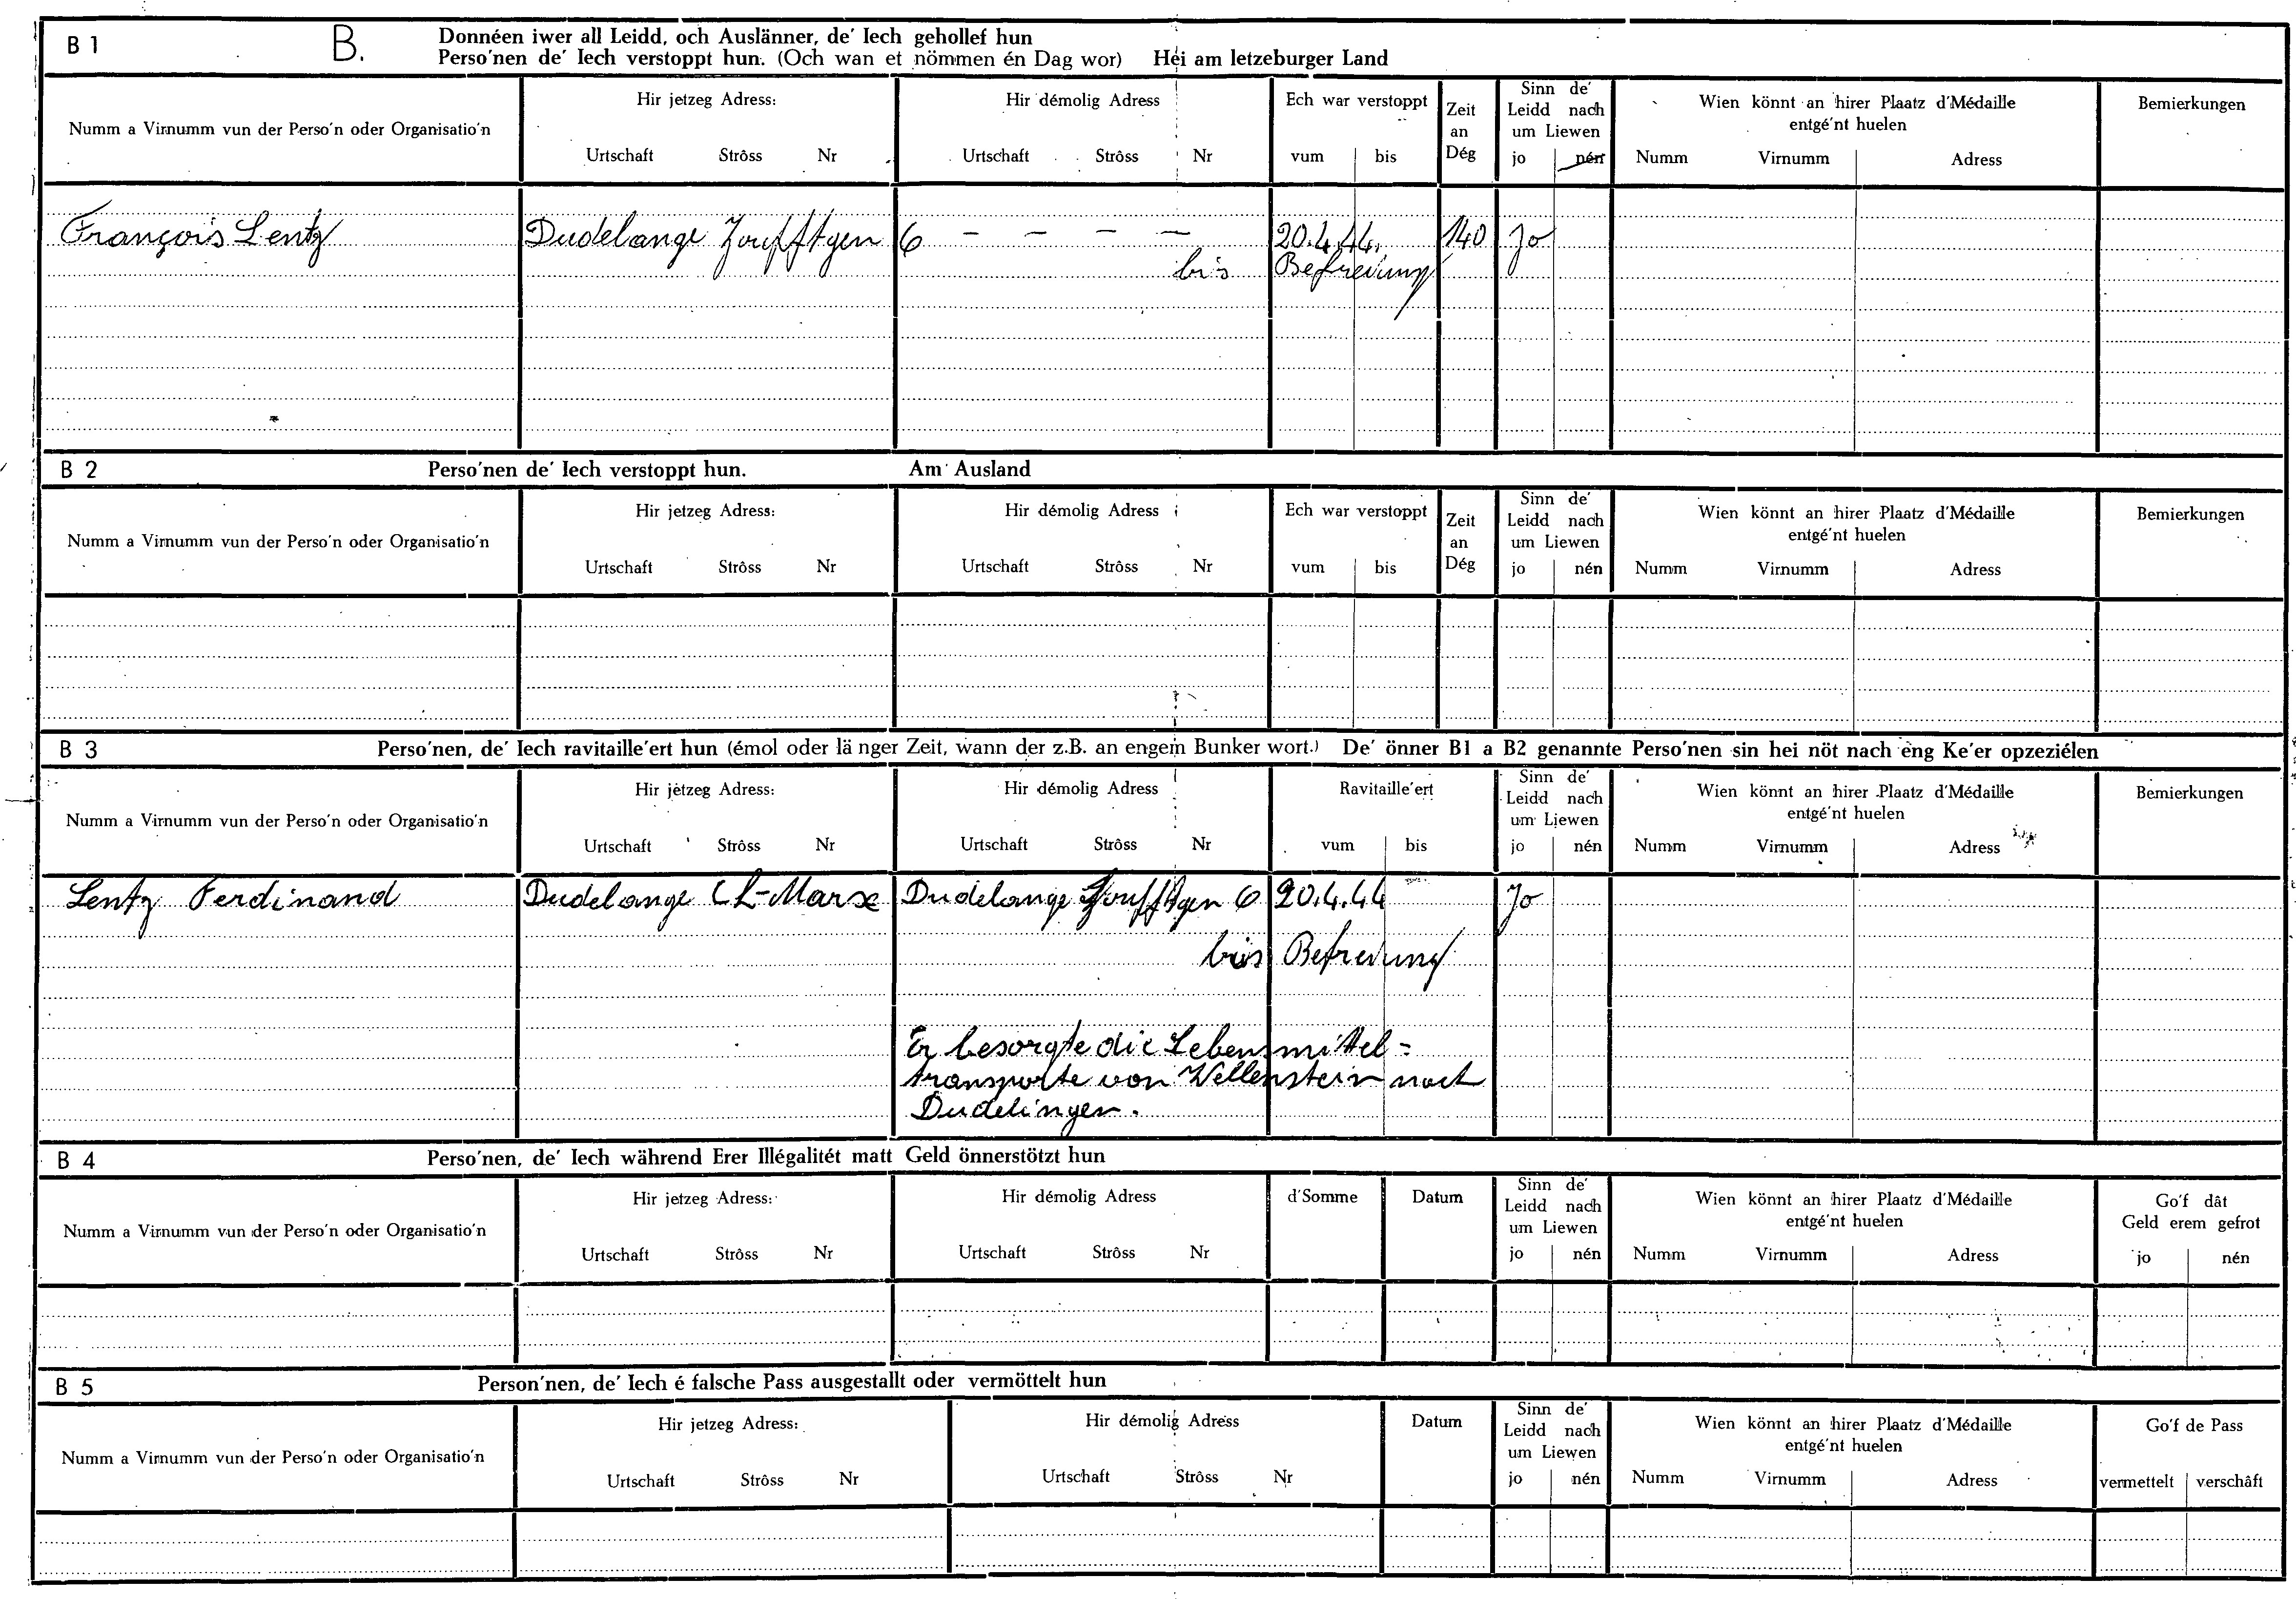 B 1 B. Donnéen iwer all Leidd, och Auslänner, de' Iech gehollef hun
Perso'nen de' Iech verstoppt hun. (Och wan et nömmen én Dag wor) Héi am letzeburger Land
Numm a Virnumm vun der Perso'n oder Organisatio'n
Hir jetzeg Adress:
Urtschaft Strôss Nr
Hir démolig Adress
Urtschaft Strôss Nr
Ech war verstoppt
vum bis
Zeit
an
Dég
Sinn de'
Leidd nach
um Liewen
jo nén
Wien könnt an hirer Plaatz d'Médaille
entgé'nt huelen
Numm Virnumm Adress
Bemierkungen
François Lentz Dudelange Zoufftgen 6 - - - - 20.4.44. 140 Jo
bis Befreiung
B 2 Perso'nen de' Iech verstoppt hun. Am Ausland
Numm a Virnumm vun der Perso'n oder Organisatio'n
Hir jetzeg Adress:
Urtschaft Strôss Nr
Hir démolig Adress
Urtschaft Strôss Nr
Ech war verstoppt
vum bis
Zeit
an
Dég
Sinn de'
Leidd nach
um Liewen
jo nén
Wien könnt an hirer Plaatz d'Médaille
entgé'nt huelen
Numm Virnumm Adress
Bemierkungen
B 3 Perso'nen, de' Iech ravitaille'ert hun (émol oder länger Zeit, wann der z.B. an engem Bunker wort.) De' önner B1 a B2 genannte Perso'nen sin hei nöt nach eng Ke'er opzeziélen
Numm a Virnumm vun der Perso'n oder Organisatio'n
Hir jetzeg Adress:
Urtschaft Strôss Nr
Hir démolig Adress
Urtschaft Strôss Nr
Ravitaille'ert
vum bis
Sinn de'
Leidd nach
um Liewen
jo nén
Wien könnt an hirer Plaatz d'Médaille
entgé'nt huelen
Numm Virnumm Adress
Bemierkungen
Lentz Ferdinand Dudelange Ch-Marx Dudelange Zoufftgen 6 20.4.44 Jo
bis Befreiung
Er besorgte die Lebensmittel=
transporte von Wellenstein nach
Dudelingen.
B 4 Perso'nen, de' Iech während Erer Illégalitét matt Geld önnerstötzt hun
Numm a Virnumm vun der Perso'n oder Organisatio'n
Hir jetzeg Adress:
Urtschaft Strôss Nr
Hir démolig Adress
Urtschaft Strôss Nr
d'Somme
Datum
Sinn de'
Leidd nach
um Liewen
jo nén
Wien könnt an hirer Plaatz d'Médaille
entgé'nt huelen
Numm Virnumm Adress
Go'f dât
Geld erem gefrot
jo nén
B 5 Person'nen, de' Iech é falsche Pass ausgestallt oder vermöttelt hun
Numm a Virnumm vun der Perso'n oder Organisatio'n
Hir jetzeg Adress:
Urtschaft Strôss Nr
Hir démolig Adress
Urtschaft Strôss Nr
Datum
Sinn de'
Leidd nach
um Liewen
jo nén
Wien könnt an hirer Plaatz d'Médaille
entgé'nt huelen
Numm Virnumm Adress
Go'f de Pass
vermettelt verschâft